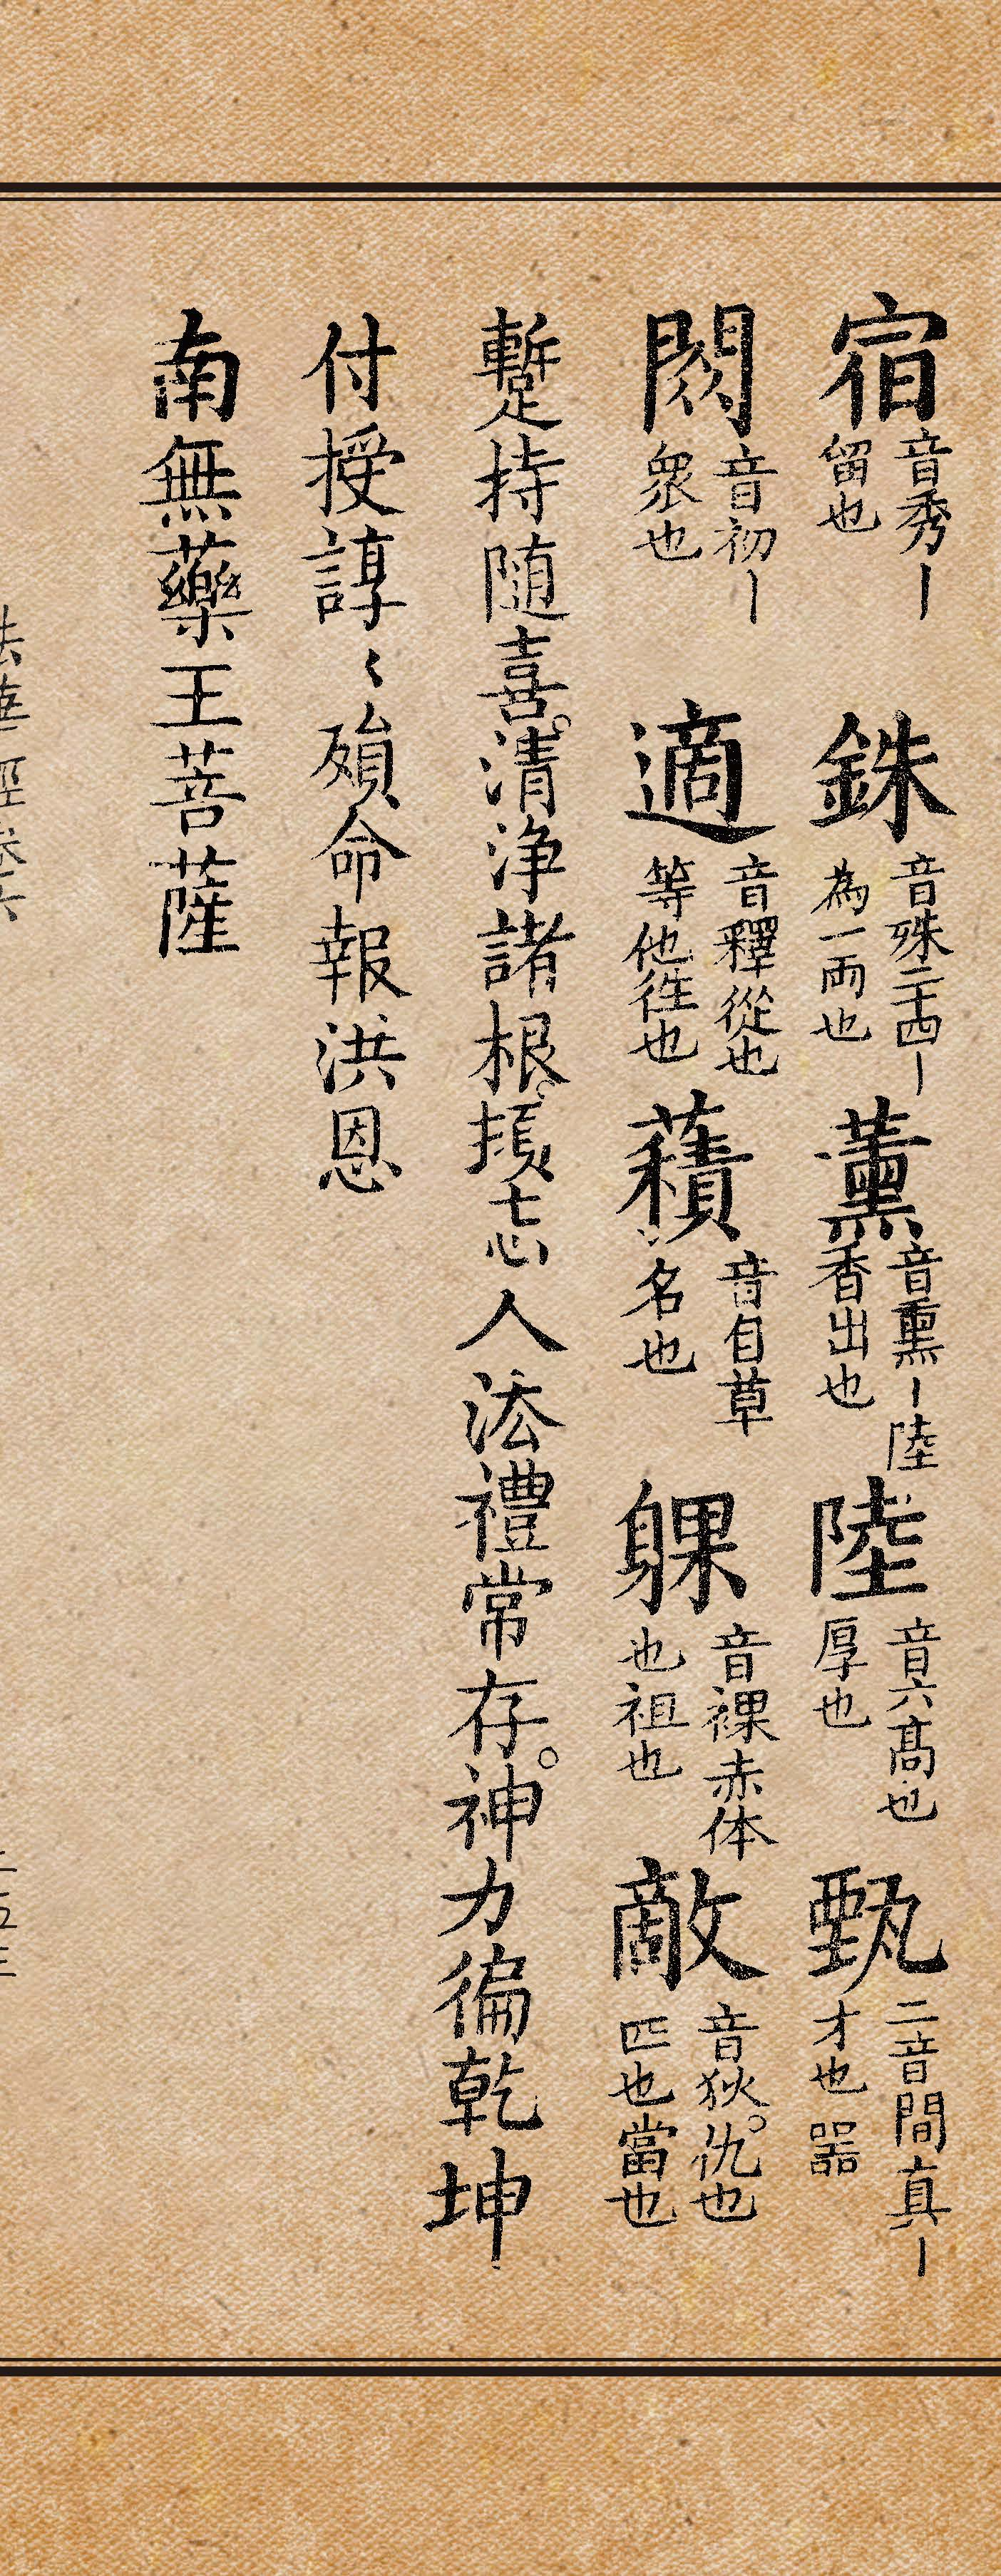 宿音秀丨留也 銖音殊二十四丨為一兩也 薰音熏丨陸香出也 陸音六高也厚也 甄二音間真丨才也器
閦音初丨眾也 適音釋從也等他徃也 藬音自草名也 躶音裸赤体也祖也 敵音狄。仇也匹也當也
蹔持随喜。清净諸根。損忘人法禮常存。神力徧乾坤
付授諄〻殞命報洪恩
南無藥王菩薩
法華經卷六
二五三